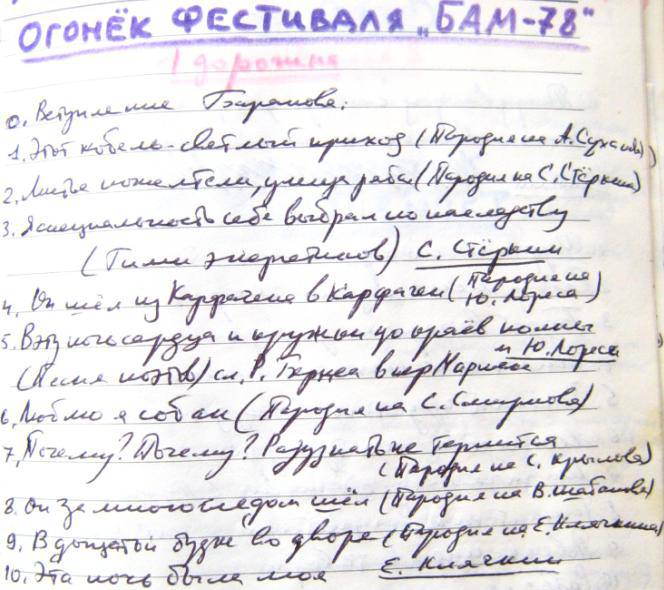 ОГОНЁК ФЕСТИВАЛЯ „БАМ-78"
1 дорожка
0. Вступление Баранова.
1. Этот кобель - светлый приход (Пародия на А. Суханова)
2. Листья пожелтели, улица ряба (Пародия на С. Стёркина)
3. Я специальность себе выбрал по наследству
(Гимн энергетиков) С. Стёркин
4. Он шёл из Карфагена в Карфаген (Пародия на Ю. Лореса)
5. В эту ночь сердца и кружки до краёв полны
(Песня поэтов) сл. Р. Бернса в пер Маршака м Ю. Лореса
6. Люблю я собак (Пародия на С. Смирнова)
7. Почему? Почему? Разузнать не терпится
(Пародия на С. Крылова)
8. Он за мною следом шёл (Пародия на В. Шабанова)
9. В дощатой будке во дворе (Пародия на Е. Клячкина)
10. Эта ночь была моя Е. Клячкин